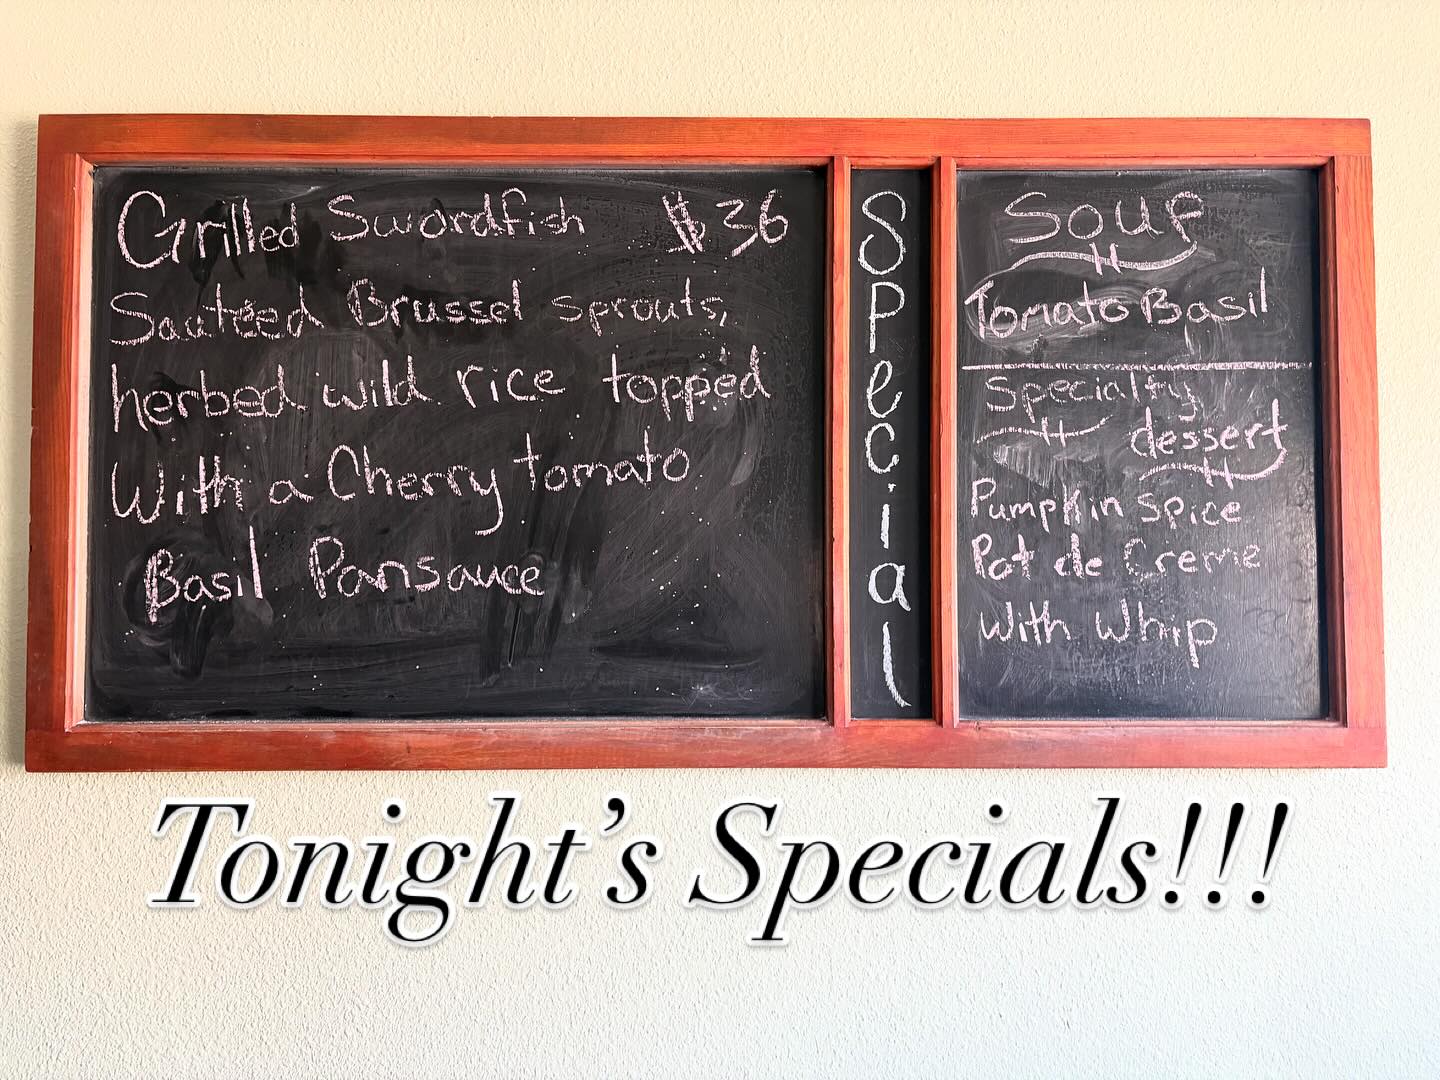 Grilled Swordfish $36
Sauteed Brussel sprouts,
herbed wild rice topped
With a Cherry tomato
Basil Pansauce
Special
Soup
Tomato Basil
Specialty
dessert
Pumpkin Spice
Pot de Creme
With Whip
Tonight's Specials!!!